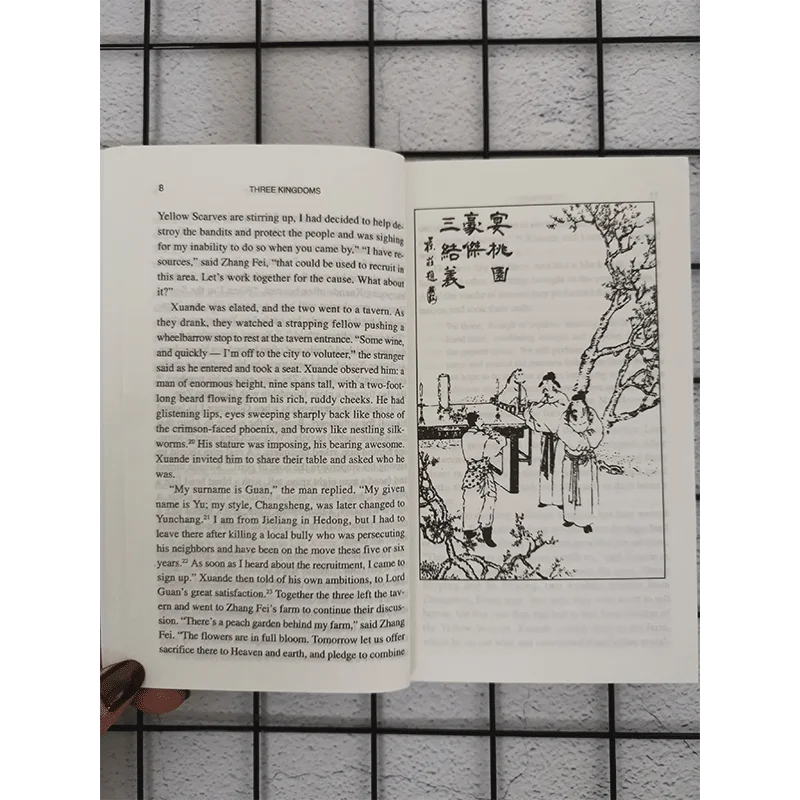 8
THREE KINGDOMS
Yellow Scarves are stirring up, I had decided to help de-
stroy the bandits and protect the people and was sighing
for my inability to do so when you came by.” “I have re-
sources,” said Zhang Fei, “that could be used to recruit in
this area. Let’s work together for the cause. What about
it?”
Xuande was elated, and the two went to a tavern. As
they drank, they watched a strapping fellow pushing a
wheelbarrow stop to rest at the tavern entrance. “Some wine,
and quickly — I’m off to the city to voluteer,” the stranger
said as he entered and took a seat. Xuande observed him: a
man of enormous height, nine spans tall, with a two-foot-
long beard flowing from his rich, ruddy cheeks. He had
glistening lips, eyes sweeping sharply back like those of
the crimson-faced phoenix, and brows like nestling silk-
worms.²⁰ His stature was imposing, his bearing awesome.
Xuande invited him to share their table and asked who he
was.
“My surname is Guan,” the man replied. “My given
name is Yu; my style, Changsheng, was later changed to
Yunchang.²¹ I am from Jieliang in Hedong, but I had to
leave there after killing a local bully who was persecuting
his neighbors and have been on the move these five or six
years.²² As soon as I heard about the recruitment, I came to
sign up.” Xuande then told of his own ambitions, to Lord
Guan’s great satisfaction.²³ Together the three left the tav-
ern and went to Zhang Fei’s farm to continue their discus-
sion. “There’s a peach garden behind my farm,” said Zhang
Fei. “The flowers are in full bloom. Tomorrow let us offer
sacrifice there to Heaven and earth, and pledge to combine
宴桃園
豪傑
三結義